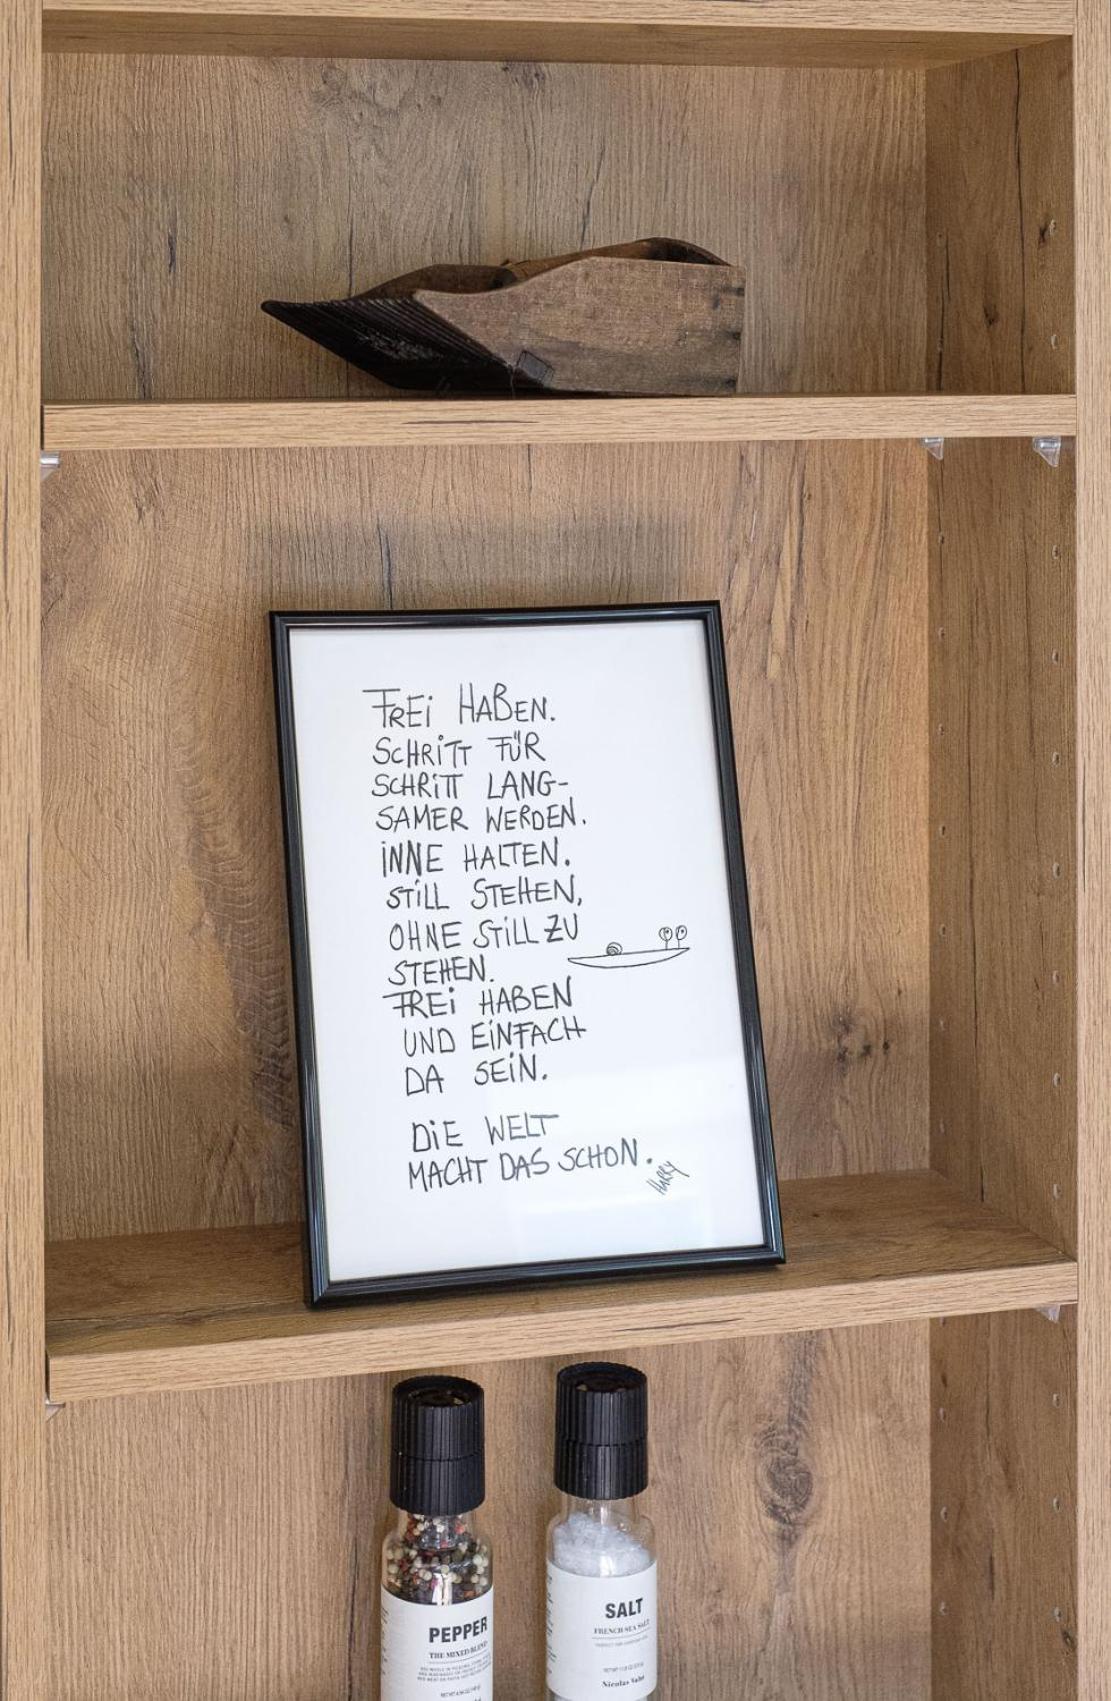 FREI HABEN.
SCHRITT FÜR
SCHRITT LANG-
SAMER WERDEN.
INNE HALTEN.
STILL STEHEN,
OHNE STILL ZU
STEHEN.
FREI HABEN
UND EINFACH
DA SEIN.
DIE WELT
MACHT DAS SCHON.
HARRY
PEPPER
THE MIXED BLEND
SALT
FRENCH SEA SALT
Nicolas Vahé